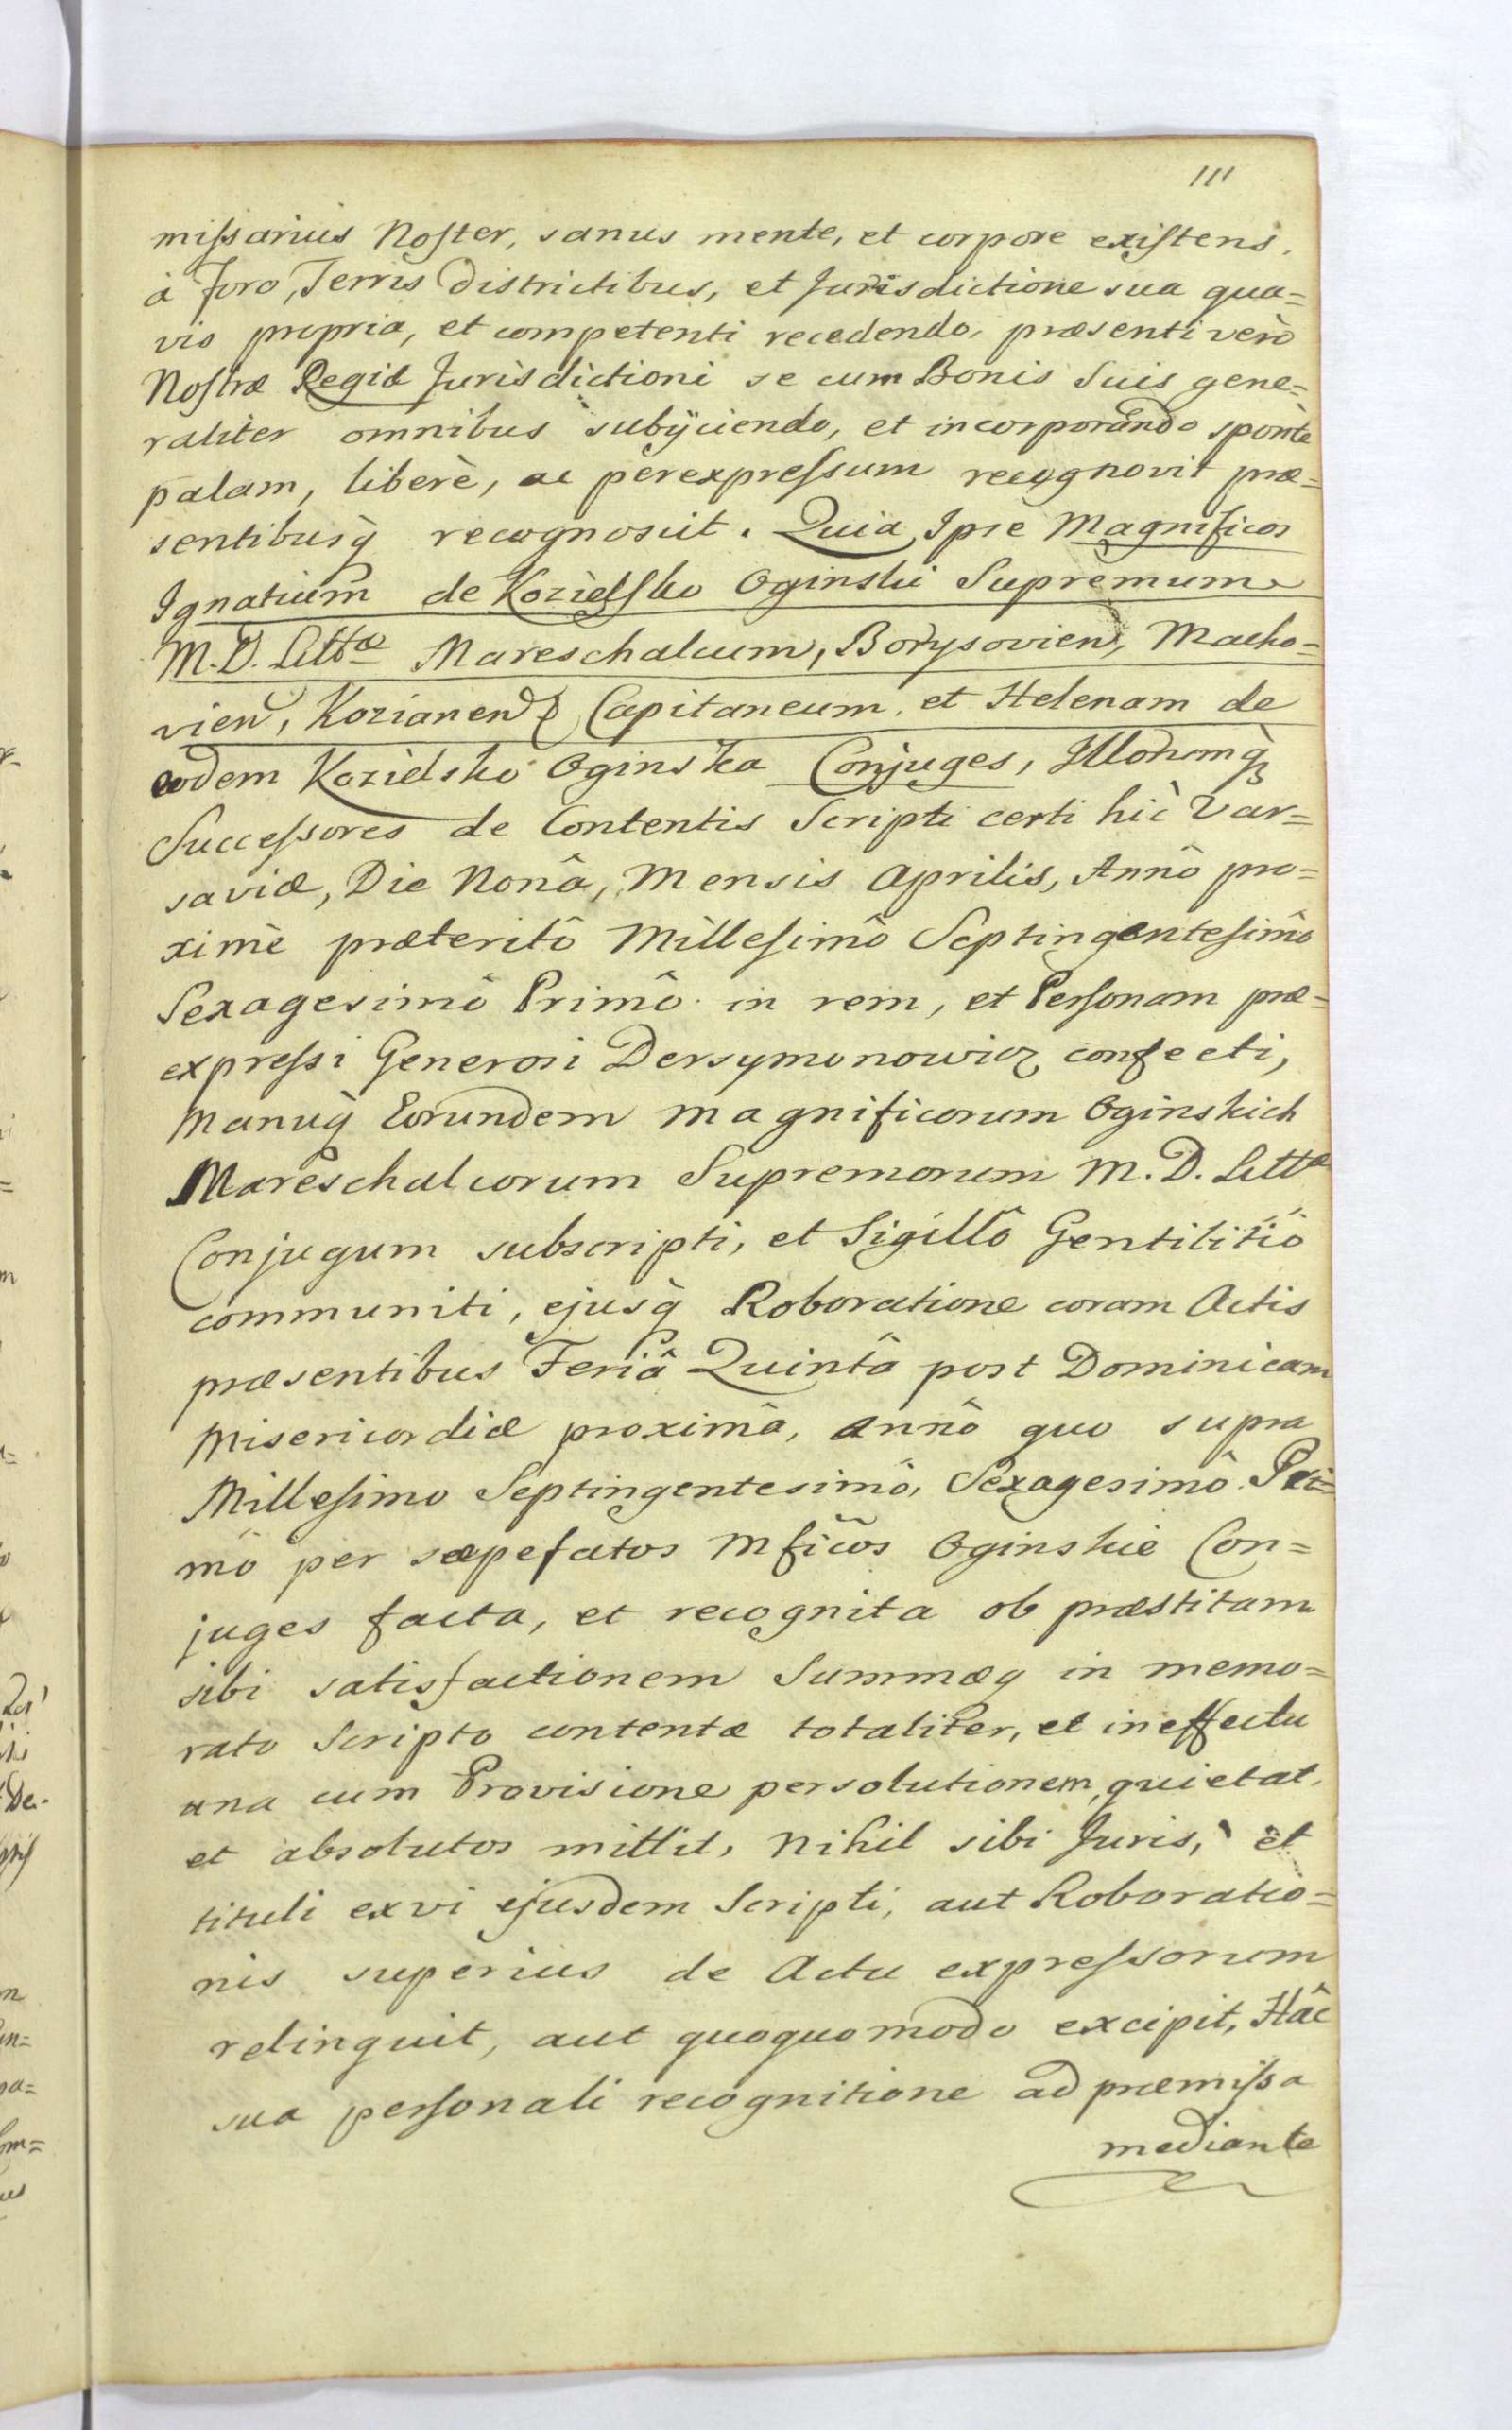 111
missarius Noster, sanus mente, et corpore existens,
à Foro, Terris Districtibus, et Jurisdictione sua qua=
vis propria, et competenti recedendo, præsenti verò
Nostræ Regiæ Jurisdictioni se cum Bonis Suis gene=
raliter omnibus subijciendo, et incorporando spontè
palam, liberè, ac perexpressum recognovit præ=
sentibusq̀ recognoscit. Quia Ipse Magnificos
Ignatium de Kozielsko Oginski Supremum
M.D. Littæ Mareschalcum, Borysovien, Macho=
vien, Kozianen Capitaneum, et Helenam de
eodem Kozielsko Oginska Conjuges, Illorumq̀
Successores de Contentis Scripti certi hìc Var=
saviæ, Die Nonâ, Mensis Aprilis, Annô pro=
ximè præteritô Millesimô Septingentesimô
Sexagesimô Primô in rem, et Personam præ=
expressi Generosi Dersymonowicz confecti,
Manuq̀ Eorundem Magnificorum Oginskich
Mareschalcorum Supremorum M.D. Littæ
Conjugum subscripti, et Sigillô Gentilitiô
communiti, ejusq̀ Roboratione coram Actis
præsentibus Feriâ Quintâ post Dominicam
Misericordiæ proximâ, annô quo supra
Millesimo Septingentesimô, Sexagesimô Pri=
mô per sæpefatos Mficos Oginskie Con=
juges facta, et recognita ob præstitam
sibi satisfactionem Summæq in memo=
rato Scripto contentæ totaliter, et in effectu
una cum Provisione persolutionem, quietat,
et absolutos mittit, Nihil sibi Juris, et
tituli ex vi ejusdem Scripti, aut Roboratio=
nis superius de Actu expressorum
relinquit, aut quoquomodo excipit, Hâc
sua personali recognitione ad præmissa
mediante